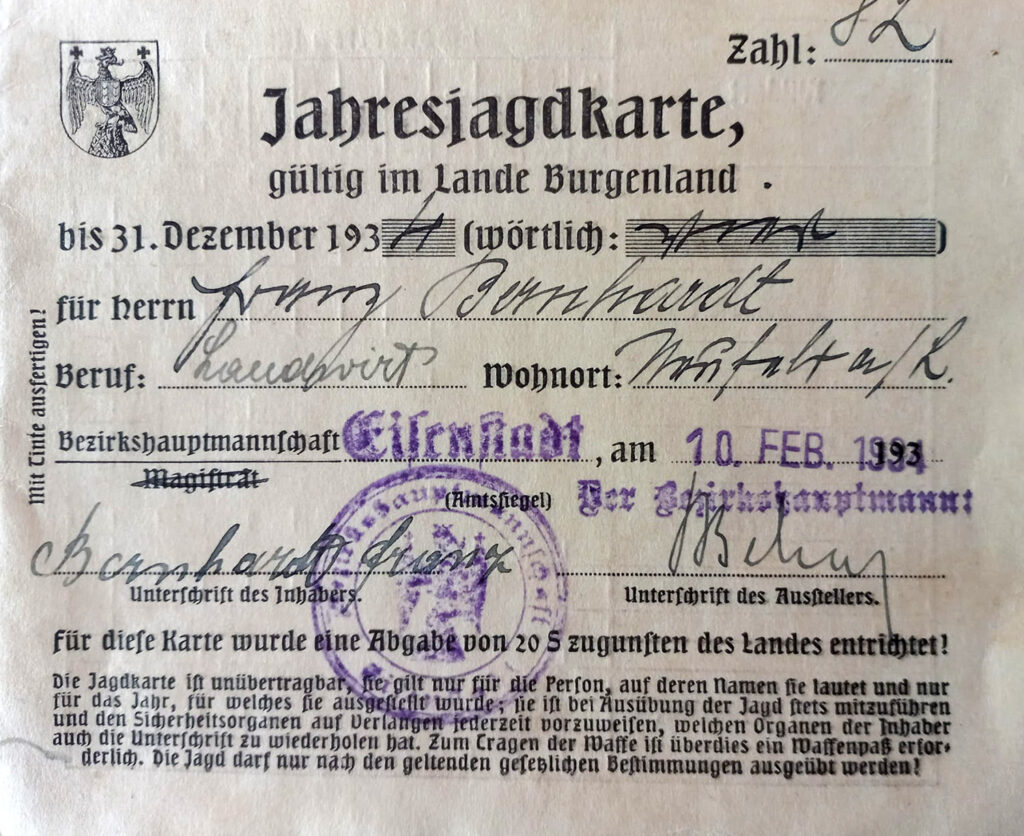 Zahl: 82
Jahresjagdkarte,
gültig im Lande Burgenland.
bis 31. Dezember 1934 (wörtlich: vier)
für Herrn Franz Bernhardt
Beruf: Landwirt Wohnort: Neufelt a/L.
Mit Tinte ausfertigen!
Bezirkshauptmannschaft Eisenstadt, am 10. FEB. 1934 193
Magistrat
(Amtssiegel) Der Bezirkshauptmann:
Bezirkshauptmannschaft
Bernhardt Franz
Unterschrift des Inhabers. Unterschrift des Ausstellers.
Für diese Karte wurde eine Abgabe von 20 S zugunsten des Landes entrichtet!
Die Jagdkarte ist unübertragbar, sie gilt nur für die Person, auf deren Namen sie lautet und nur
für das Jahr, für welches sie ausgestellt wurde; sie ist bei Ausübung der Jagd stets mitzuführen
und den Sicherheitsorganen auf Verlangen jederzeit vorzuweisen, welchen Organen der Inhaber
auch die Unterschrift zu wiederholen hat. Zum Tragen der Waffe ist überdies ein Waffenpaß erfor-
derlich. Die Jagd darf nur nach den geltenden gesetzlichen Bestimmungen ausgeübt werden!